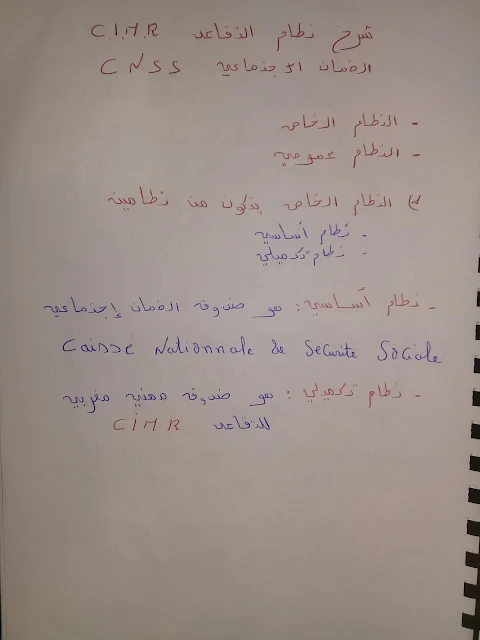 شرح نظام التقاعد C.I.M.R
الضمان الاجتماعي CNSS
- النظام الخاص
- النظام عمومي
النظام الخاص يتكون من نظامين
- نظام أساسي
- نظام تكميلي
- نظام أساسي: هو صندوق الضمان إجتماعي
Caisse Nationnale de Securite Sociale
- نظام تكميلي: هو صندوق مهني مغربي
للتقاعد CIMR